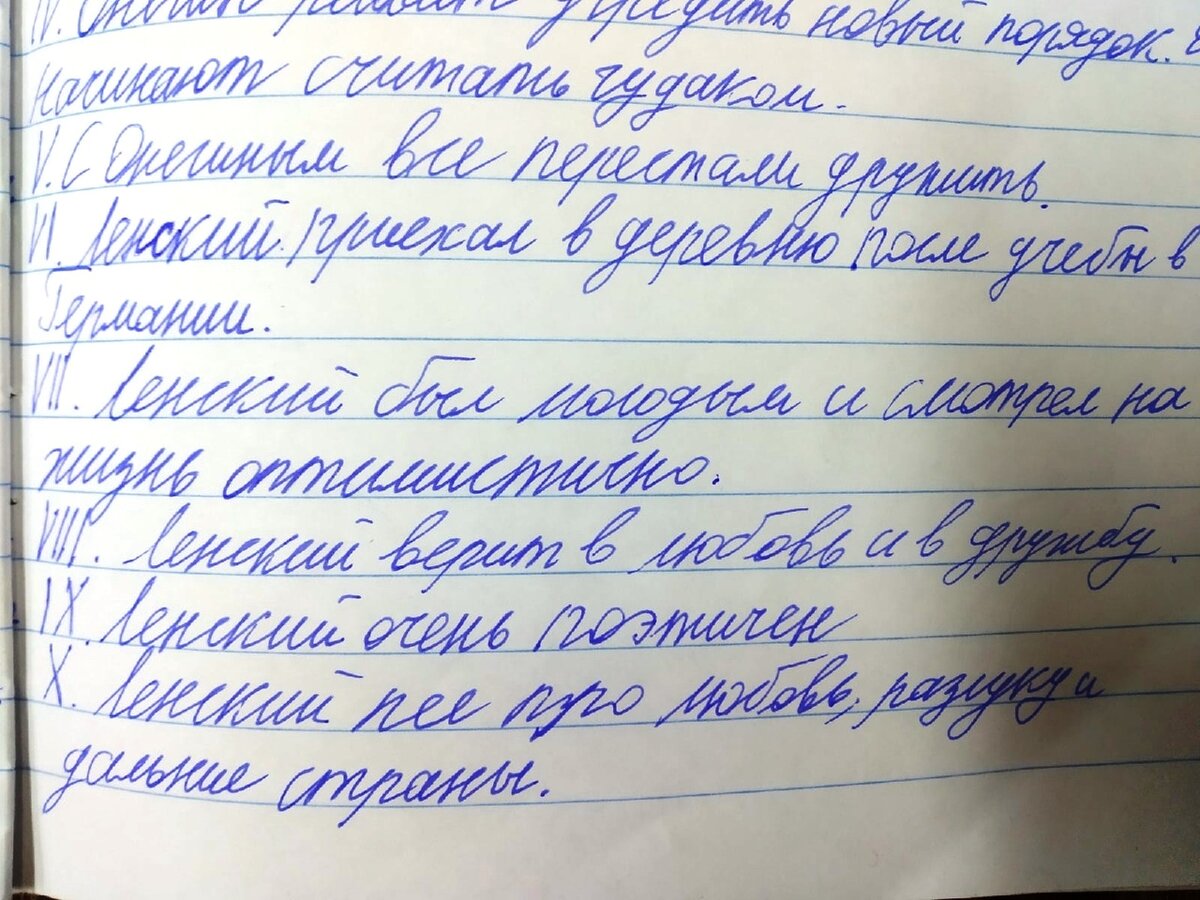 IV. Онегин решает учредить новый порядок.
начинают считать чудаком.
V. С Онегиным все перестали дружить.
VI. Ленский приехал в деревню после учебы в
Германии.
VII. Ленский был молодым и смотрел на
жизнь оптимистично.
VIII. Ленский верит в любовь и в дружбу.
IX. Ленский очень поэтичен
X. Ленский пел про любовь, разлуку и
дальние страны.